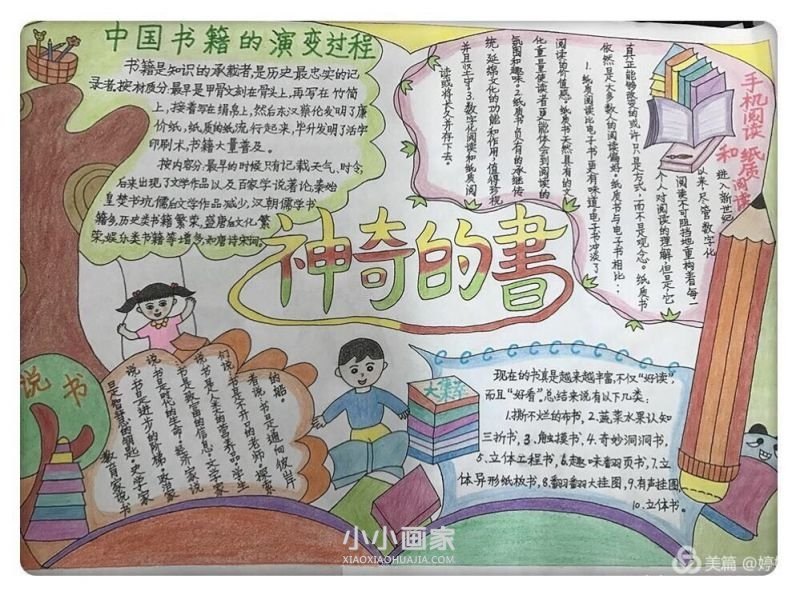 中国书籍的演变过程
书籍是知识的承载者,是历史最忠实的记
录者,按材质分:最早是甲骨文刻在骨头上,再写在竹简
上,接着写在绢帛上,然后东汉蔡伦发明了廉
价纸,纸质的纸流行起来,毕升发明了活字
印刷术,书籍大量普及。
按内容分:最早的时候只有记载天气、时令,
后来出现了文学作品以及百家学说著论,秦始
皇焚书坑儒后文学作品减少,汉朝儒学书
籍多,历史类书籍繁荣,盛唐后文化繁
荣,娱乐类书籍等增多和唐诗宋词
手机阅读
和
纸质阅读
进入新世纪
以来,尽管数字化
阅读不可阻挡地重构着每一
个人对阅读的理解,但是,它
真正能够改变的或许只是方式,而不是观念。纸质书
依然是大多数人的阅读偏好,纸质书与电子书相比:
1.纸质阅读比电子书更有味道,电子书冲淡了
阅读的价值感,纸质书天然具有的文
化重量使读者更能体会到阅读的
氛围和趣味。2.纸质书负有的承继传
统、延绵文化的功能和作用,值得珍视
并且坚守。3.数字化阅读和纸质阅
读或将长久并存下去。
神奇的書
说书
的船。
者说:书是通向彼岸
们说:书是不开口的老师,探索
说:书是人生的营养品,学生
说:书是致富的信息,文学家
说:书是时代的生命,经济家
说:书是进步的阶梯,政治家
是智慧的钥匙,史学家
教育家说
大集萃
现在的书真是越来越丰富,不仅“好读”,
而且“好看”,总结来说有以下几类:
1.撕不烂的布书,2.蔬菜水果认知
三折书,3.触摸书,4.奇妙洞洞书,
5.立体工程书,6.趣味翻页书,7.立
体异形纸板书,8.翻翻大挂图,9.有声挂图
10.立体书。
小小画家
XIAOXIAOHUAJIA.COM
美篇 @婷